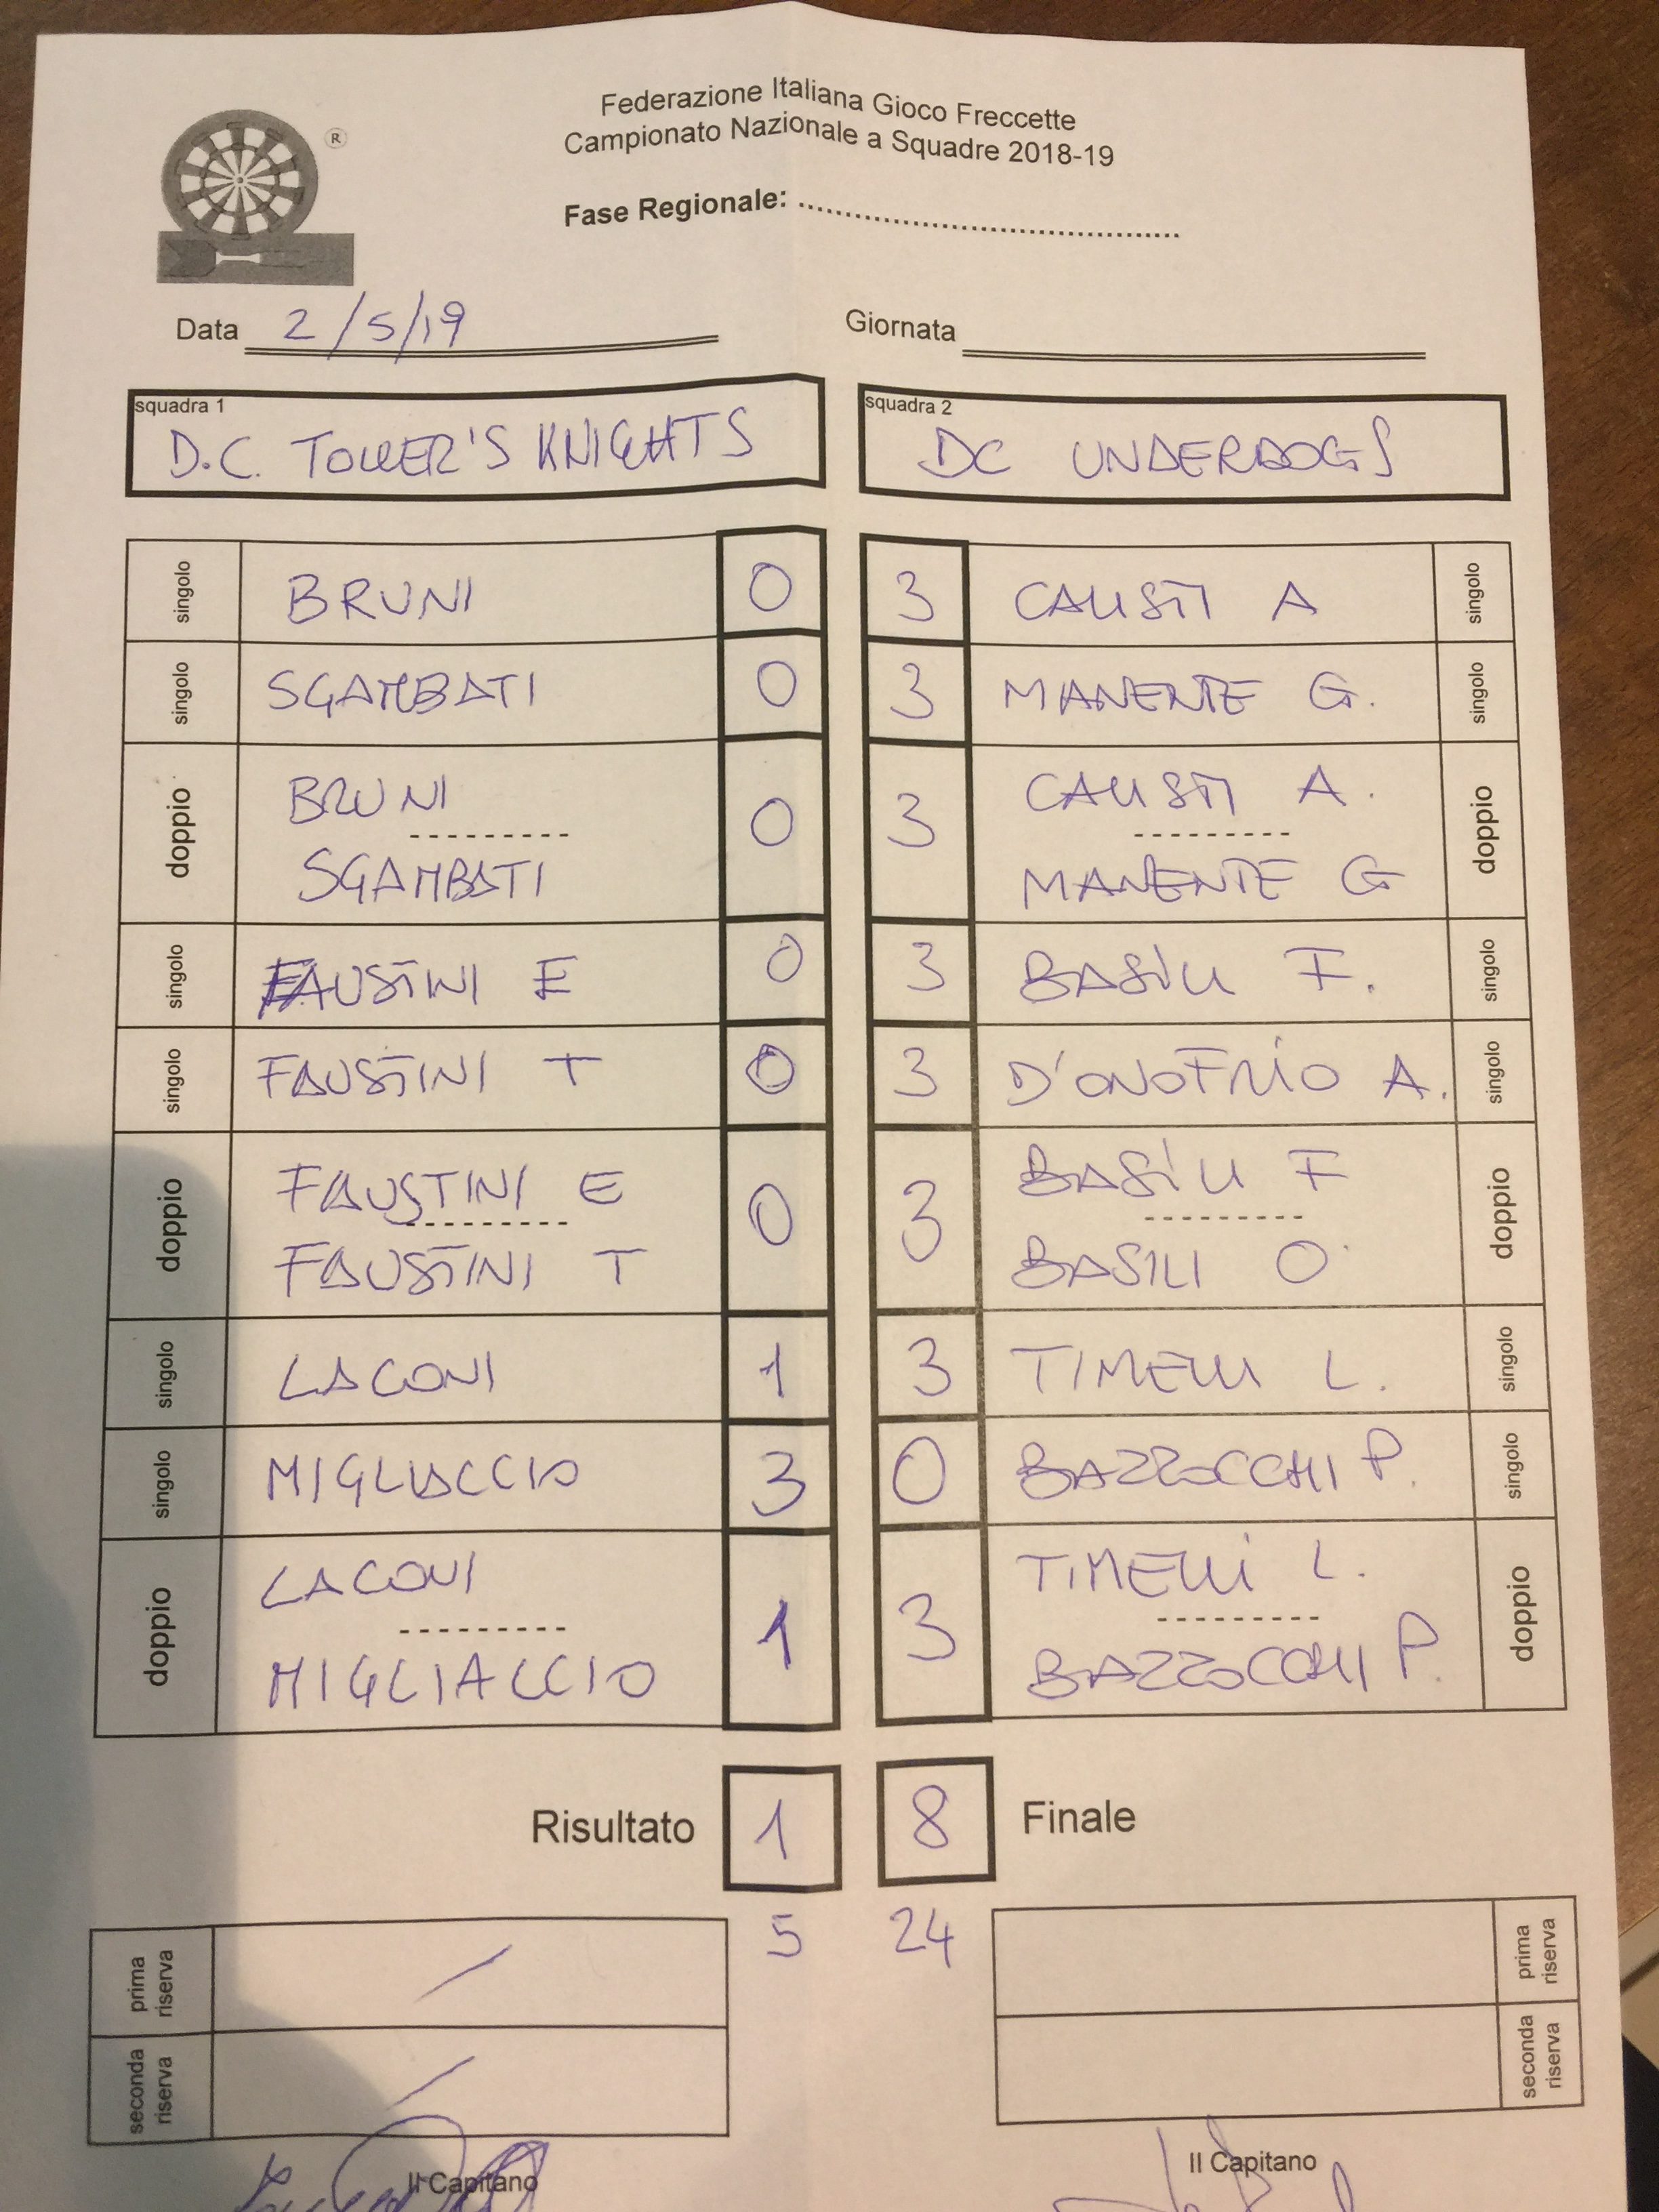 Federazione Italiana Gioco Freccette
Campionato Nazionale a Squadre 2018-19
®
Fase Regionale: ..........................................
Data 2/5/19 Giornata
squadra 1 squadra 2
D.C. TOWER'S KNIGHTS DC UNDERDOGS
singolo BRUNI 0 3 CALISTI A singolo
singolo SGAMBATI 0 3 MANENTE G. singolo
BRUNI CALISTI A.
doppio 0 3 doppio
SGAMBATI MANENTE G
singolo FAUSTINI E 0 3 BASILI F. singolo
singolo FAUSTINI T 0 3 D'ONOFRIO A. singolo
FAUSTINI E BASILI F
doppio 0 3 doppio
FAUSTINI T BASILI O
singolo LACONI 1 3 TIMELLI L. singolo
singolo MIGLIACCIO 3 0 BAZZOCCHI P. singolo
LACONI TIMELLI L.
doppio 1 3 doppio
MIGLIACCIO BAZZOCCHI P.
Risultato 1 8 Finale
5 24
prima riserva prima riserva
seconda riserva seconda riserva
Il Capitano Il Capitano